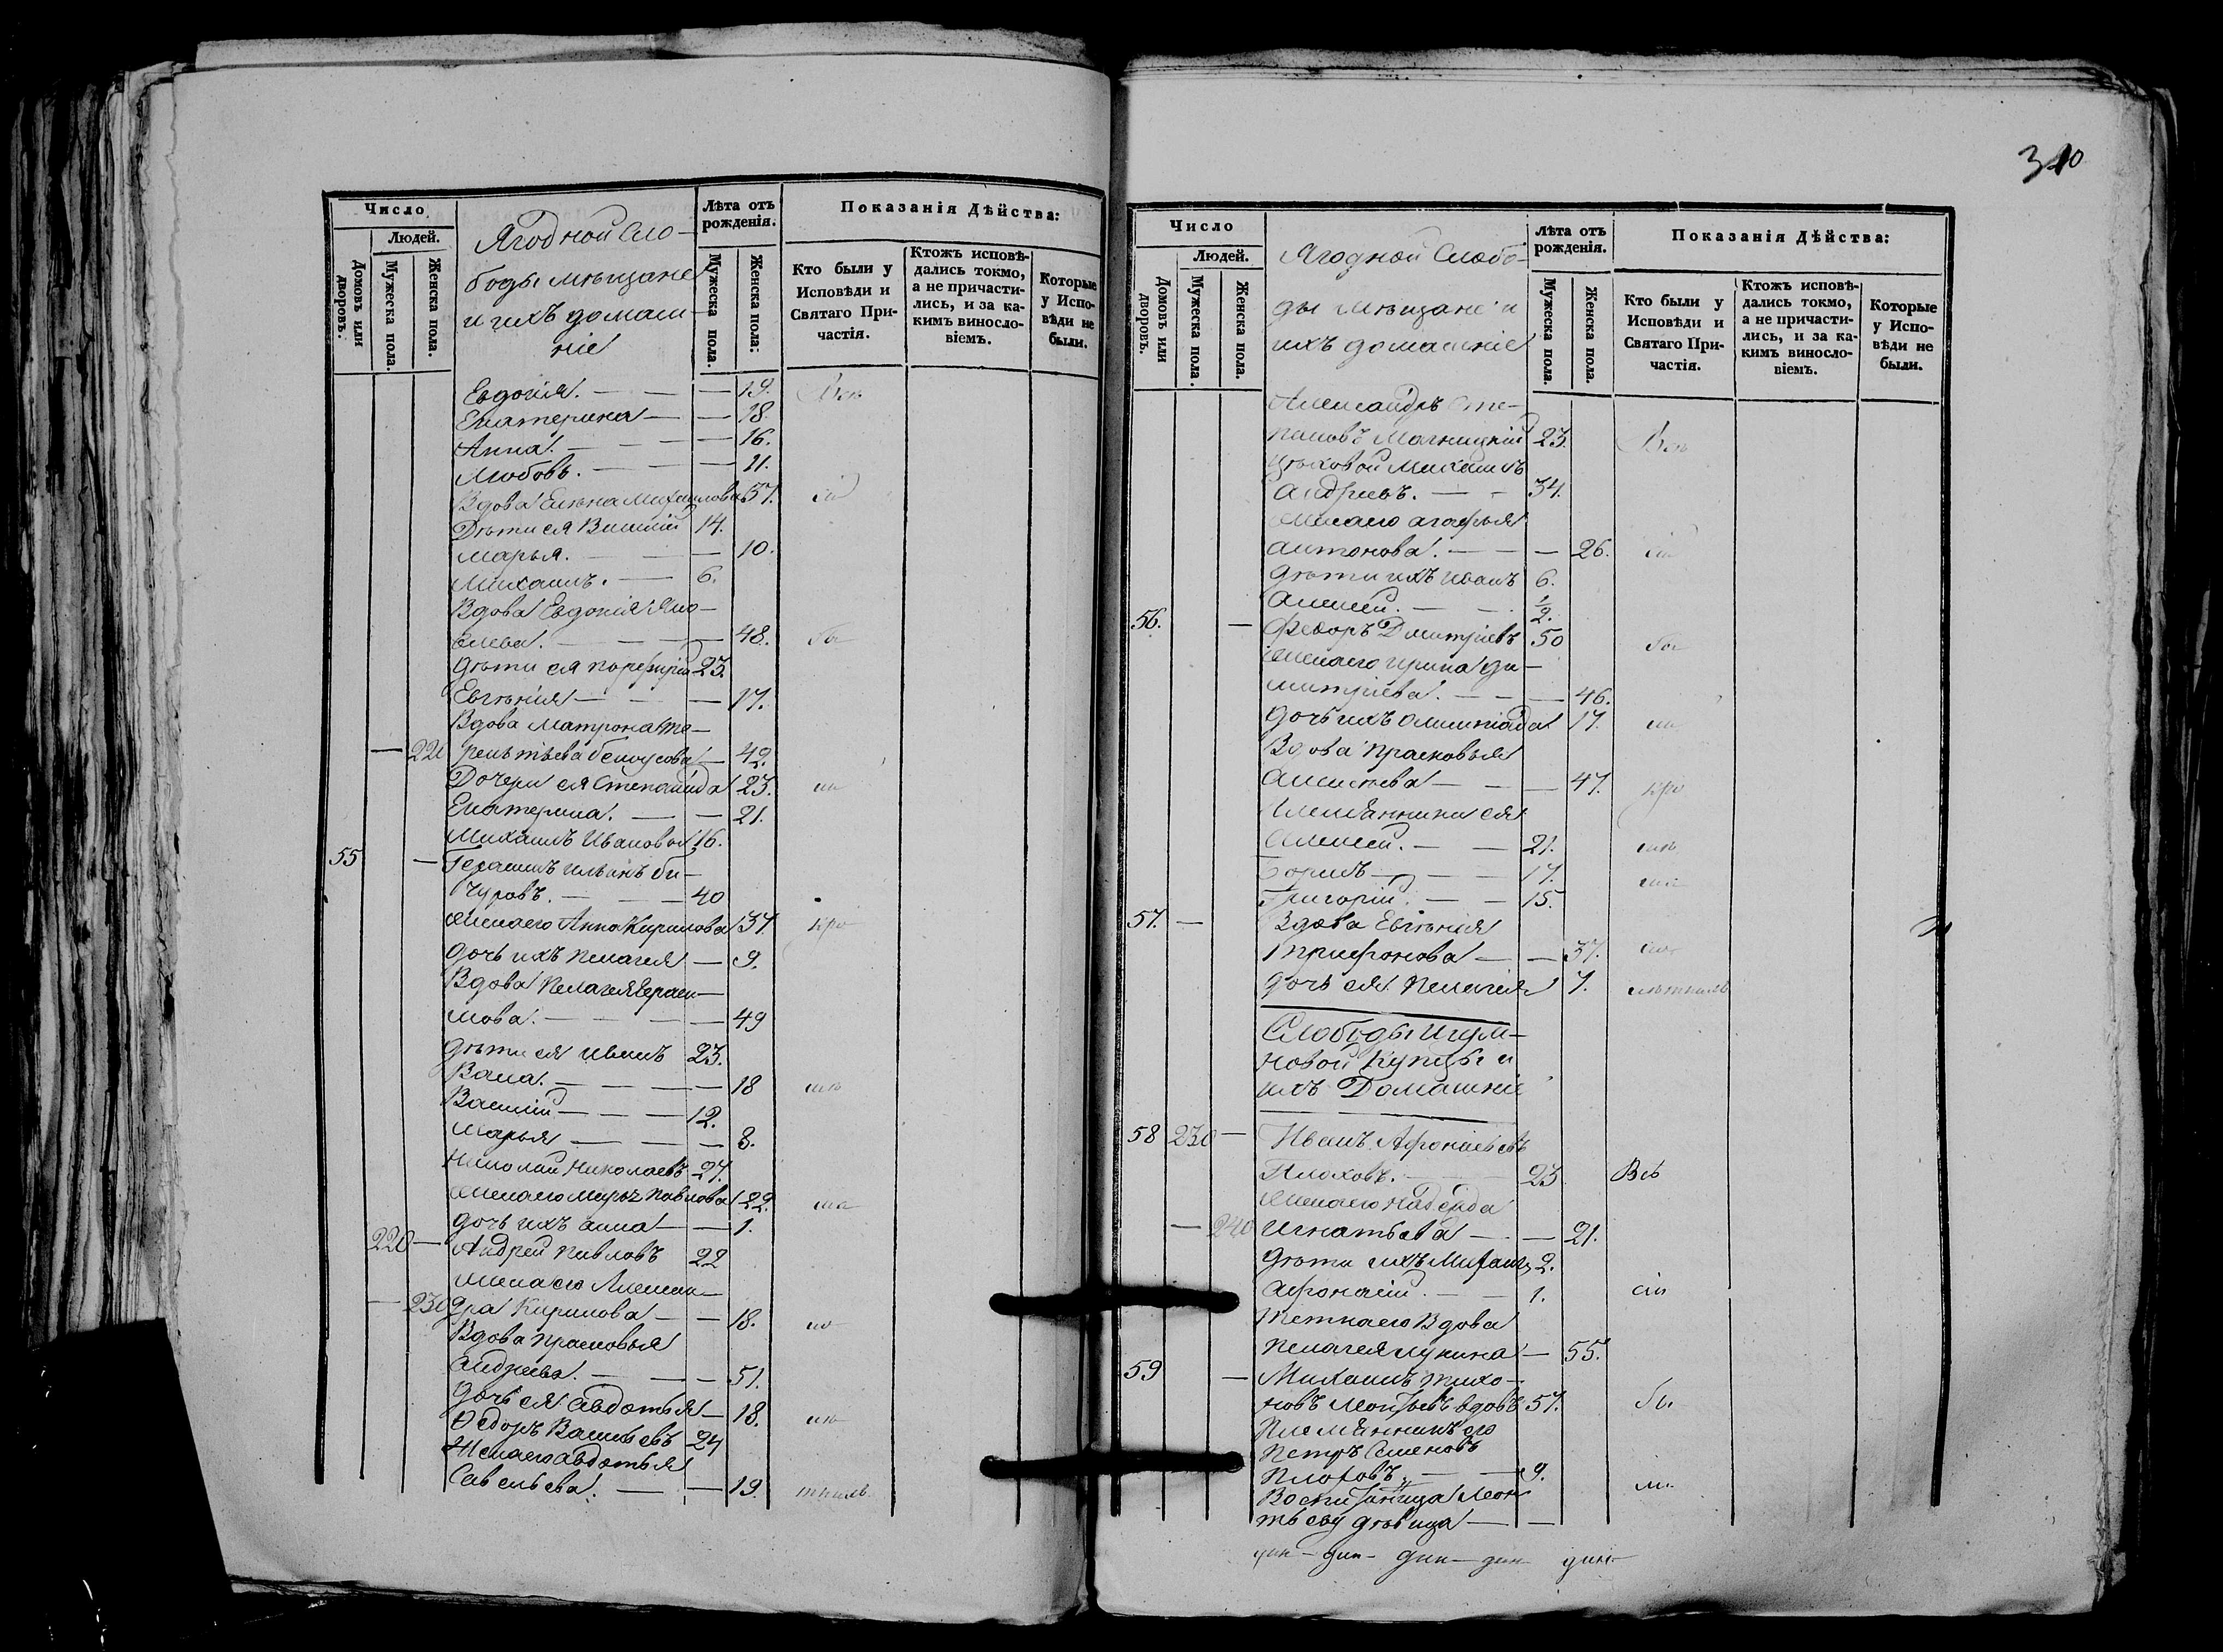 Число
Людей.
Домовъ или дворовъ.
Мужеска пола.
Женска пола.
Ягодной Сло-
боды мѣщане
и ихъ домаш-
ніе
Лѣта отъ рожденія.
Мужеска пола.
Женска пола:
Показанія Дѣйства:
Кто были у Исповѣди и Святаго При-частія.
Ктожъ исповѣ-дались токмо, а не причасти-лись, и за ка-кимъ винослo-віемъ.
Которые у Испо-вѣди не были.
Евдокія. — — — 19.
Екатерина — — 18.
Анна. — — — 16.
Любовь. — — — 11.
Вдова Елена Михаилова 57.
Дѣти ея Василій 14.
Марья. — — — 10.
Михаилъ. — 6.
Вдова Евдокія Яко-
влева. — — — 48. бы
Дѣти ея Порфирій 23.
Евгенія — — — 17.
Вдова Матрона Те-
— 220 рентьева Белоусова — 42.
Дочери ея Степанида 23. ли
Екатерина. — — 21.
Михаилъ Ивановъ 16.
55 — Герасимъ Ильинъ Би-
чуровъ. — — — 40
Жена его Анна Кирилова 37 кро
Дочь ихъ Пелагея — 9.
Вдова Пелагея Гераси-
мова. — — — — 49
Дѣти ея Иванъ 23.
— — — — 18
Василій — — — 12.
Марья — — — 8.
Николай Николаевъ 27.
Жена его Марья Павлова 22.
Дочь ихъ Анна — — 1.
220 — Андрей Павловъ 22
Жена его Алексан-
— 230 дра Кирилова — — 18.
Вдова Прасковья
Андреева. — — — 51.
Дочь ея Авдотья — 18.
Ѳедоръ Васильевъ 24
Жена его Авдотья
Савельева. — — 19.
310
Число
Людей.
Домовъ или дворовъ.
Мужеска пола.
Женска пола.
Ягодной Слобо-
ды мѣщане и
ихъ домашніе
Лѣта отъ рожденія.
Мужеска пола.
Женска пола.
Показанія Дѣйства:
Кто были у Исповѣди и Святаго При-частія.
Ктожъ исповѣ-дались токмо, а не причасти-лись, и за ка-кимъ винослo-віемъ.
Которые у Испо-вѣди не были.
Александръ Сте-
пановъ Магницкій 23. Всѣ
Цѣховой Михаилъ
Андреевъ. — — 34.
Жена его Агафья
Антонова. — — — 26.
Дѣти ихъ Иванъ 6.
Алексей. — — 1/2.
56. — Ѳедоръ Дмитріевъ 50 бы
Жена его Ирина Ди-
митріева. — — — 46.
Дочь ихъ Олимпіада 17. ли
Вдова Прасковья
Алексеева — — — 47. кро
Племянники ея
Алексей. — — 21.
Борисъ — — — 17.
Григорій. — — 15.
57. — Вдова Евгенія
Трифонова — — 37.
Дочь ея Пелагея 7.
Слободы Игум-
новой Купцы и
ихъ Домашніе
58 230 — Иванъ Афонасьевъ
Плоховъ. — — 23 Всѣ
Жена его Надежда
— 240 Игнатьева — — 21.
Дѣти ихъ Михаилъ 2.
Афонасій. — — 1. сіи
Тетка его Вдова
Пелагея Лукина — 55.
59 — Михаилъ Тихо-
новъ Леонтьевъ вдовъ 57. бы
Племянникъ его
Петръ Семеновъ
Плоховъ. — — 9. ли
Воспитанница Леон-
тьеву девица — —